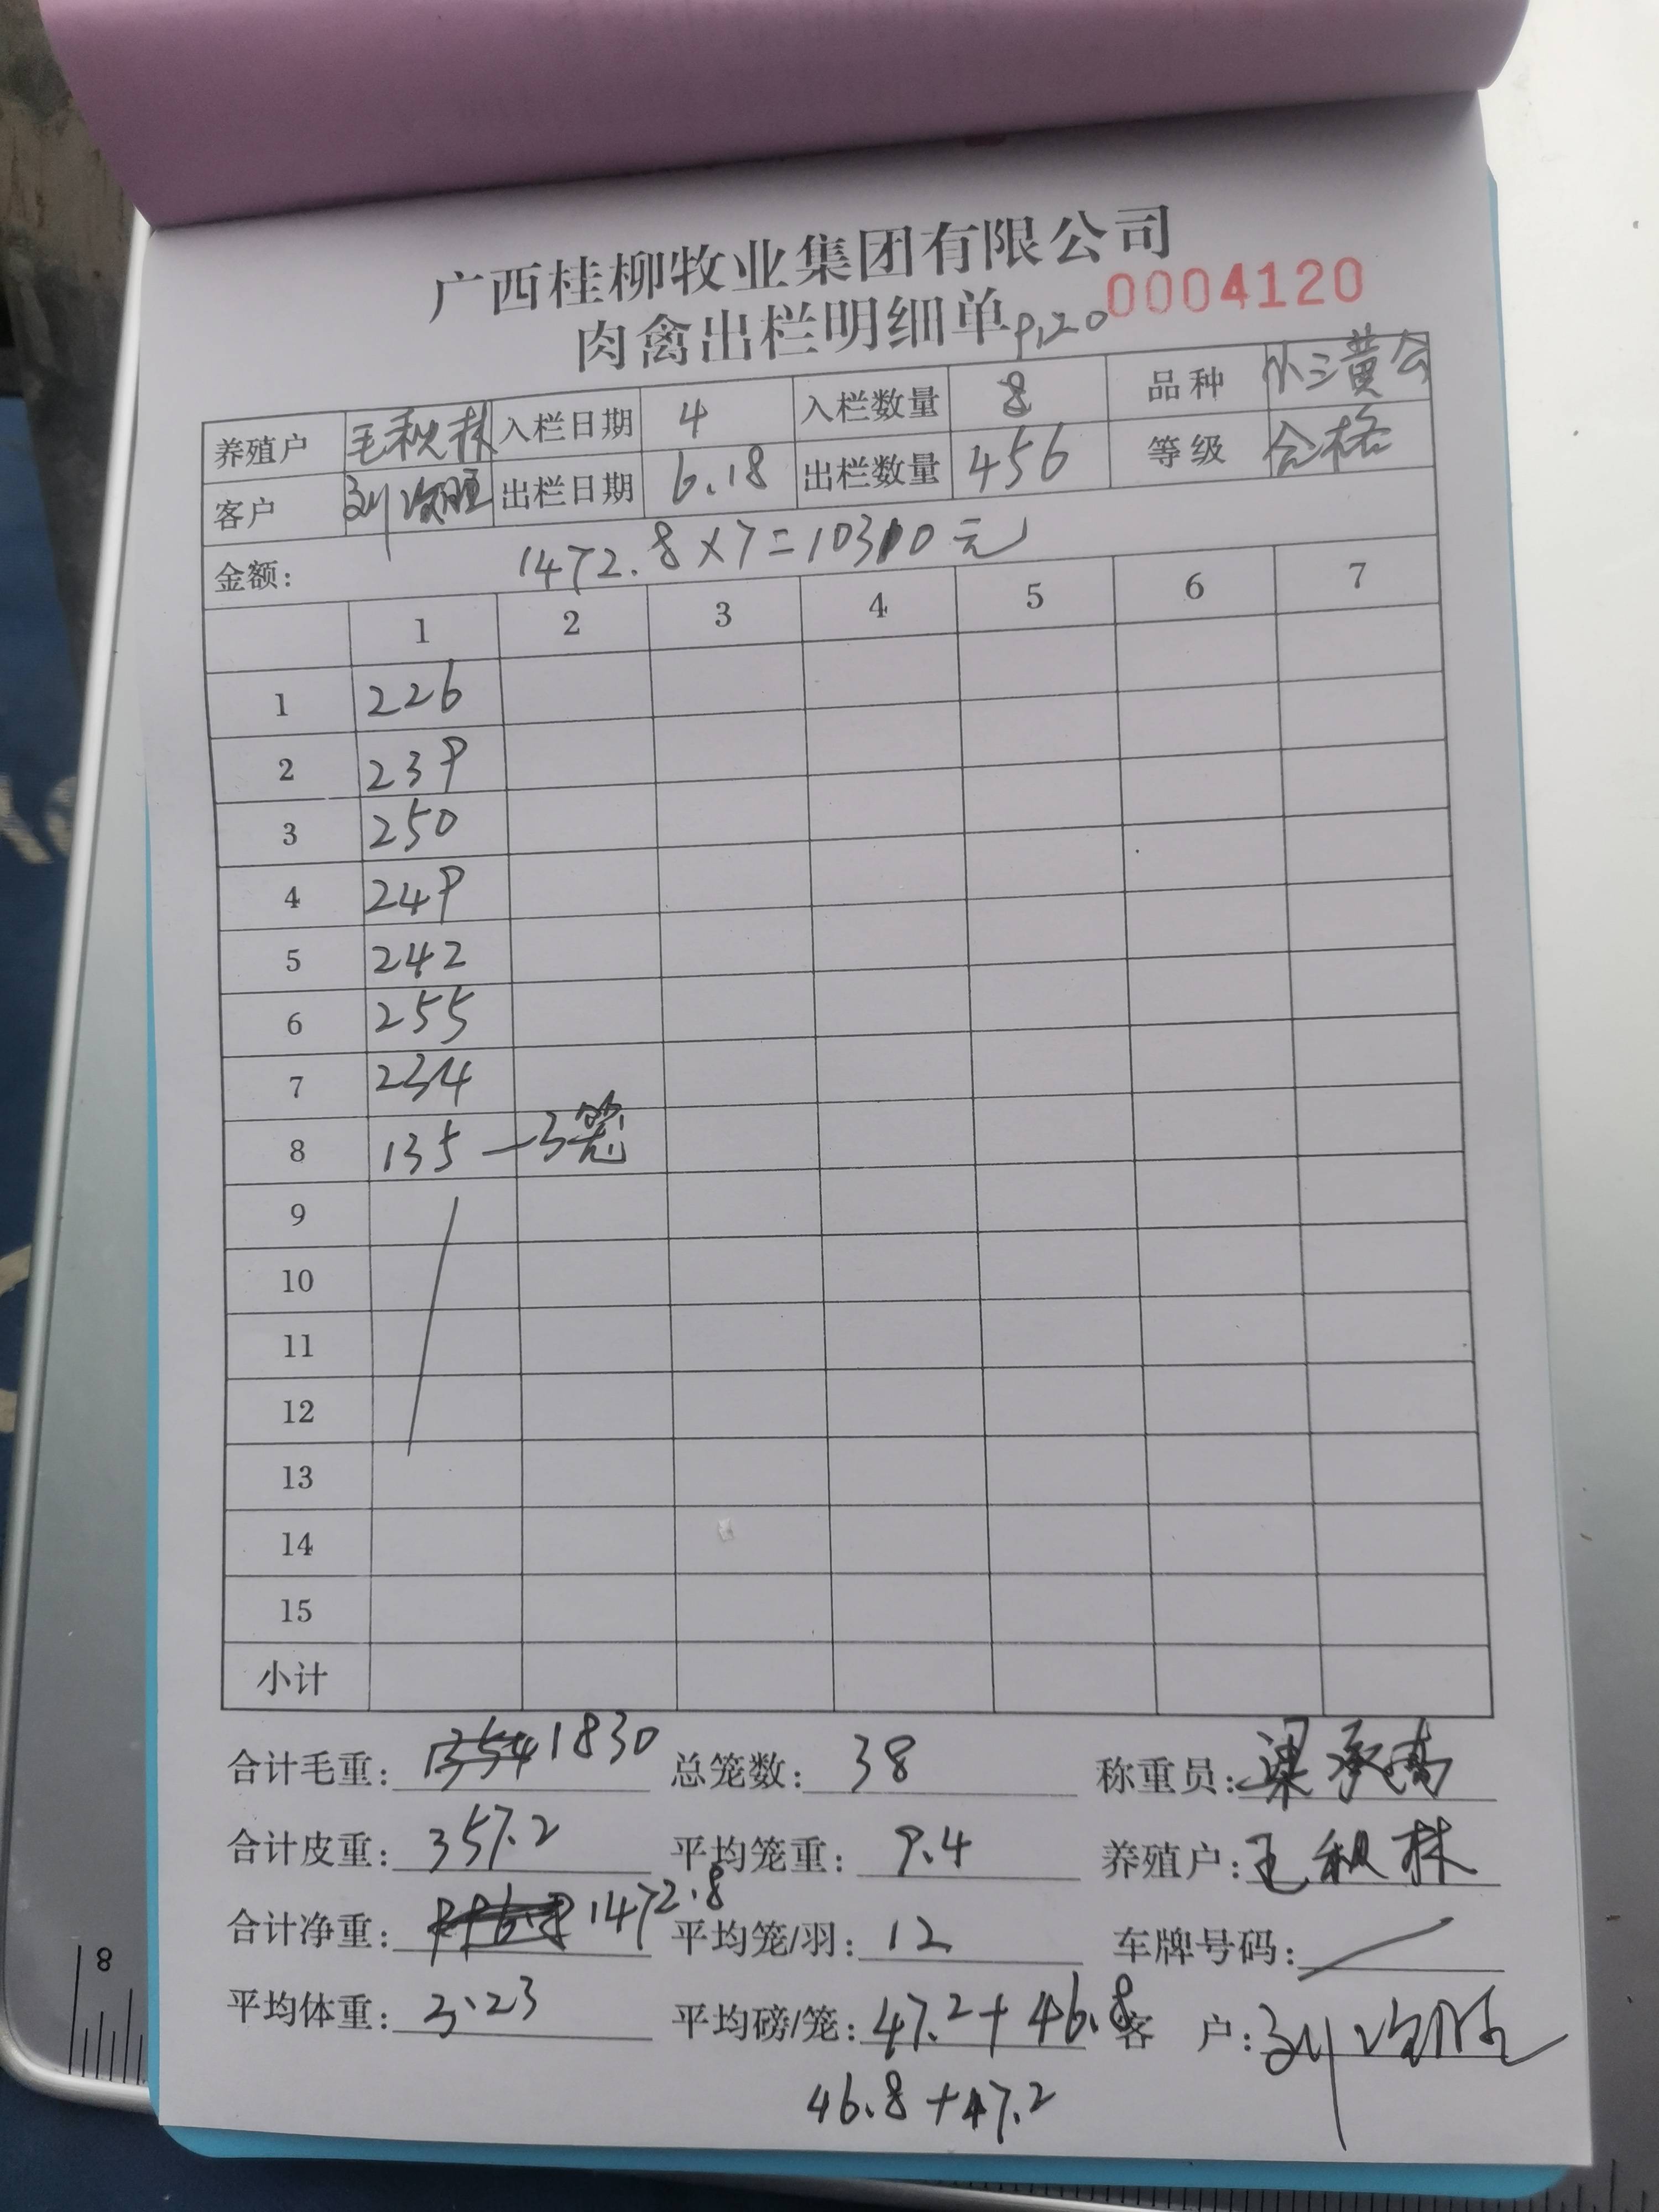 广西桂柳牧业集团有限公司
肉禽出栏明细单 9,20 0004120
养殖户 毛秋林 入栏日期 4 入栏数量 8 品种 小三黄公
客户 刘 出栏日期 6.18 出栏数量 456 等级 合格
金额: 1472.8×7=10310元
1 2 3 4 5 6 7
1 226
2 239
3 250
4 249
5 242
6 255
7 234
8 135 — 3笼
9
10
11
12
13
14
15
小计
合计毛重: 1830 总笼数: 38 称重员: 梁承高
合计皮重: 357.2 平均笼重: 9.4 养殖户: 毛秋林
合计净重: 1472.8 平均笼/羽: 12 车牌号码:
平均体重: 3.23 平均磅/笼: 47.2+46.8 客 户: 刘
46.8+47.2
8